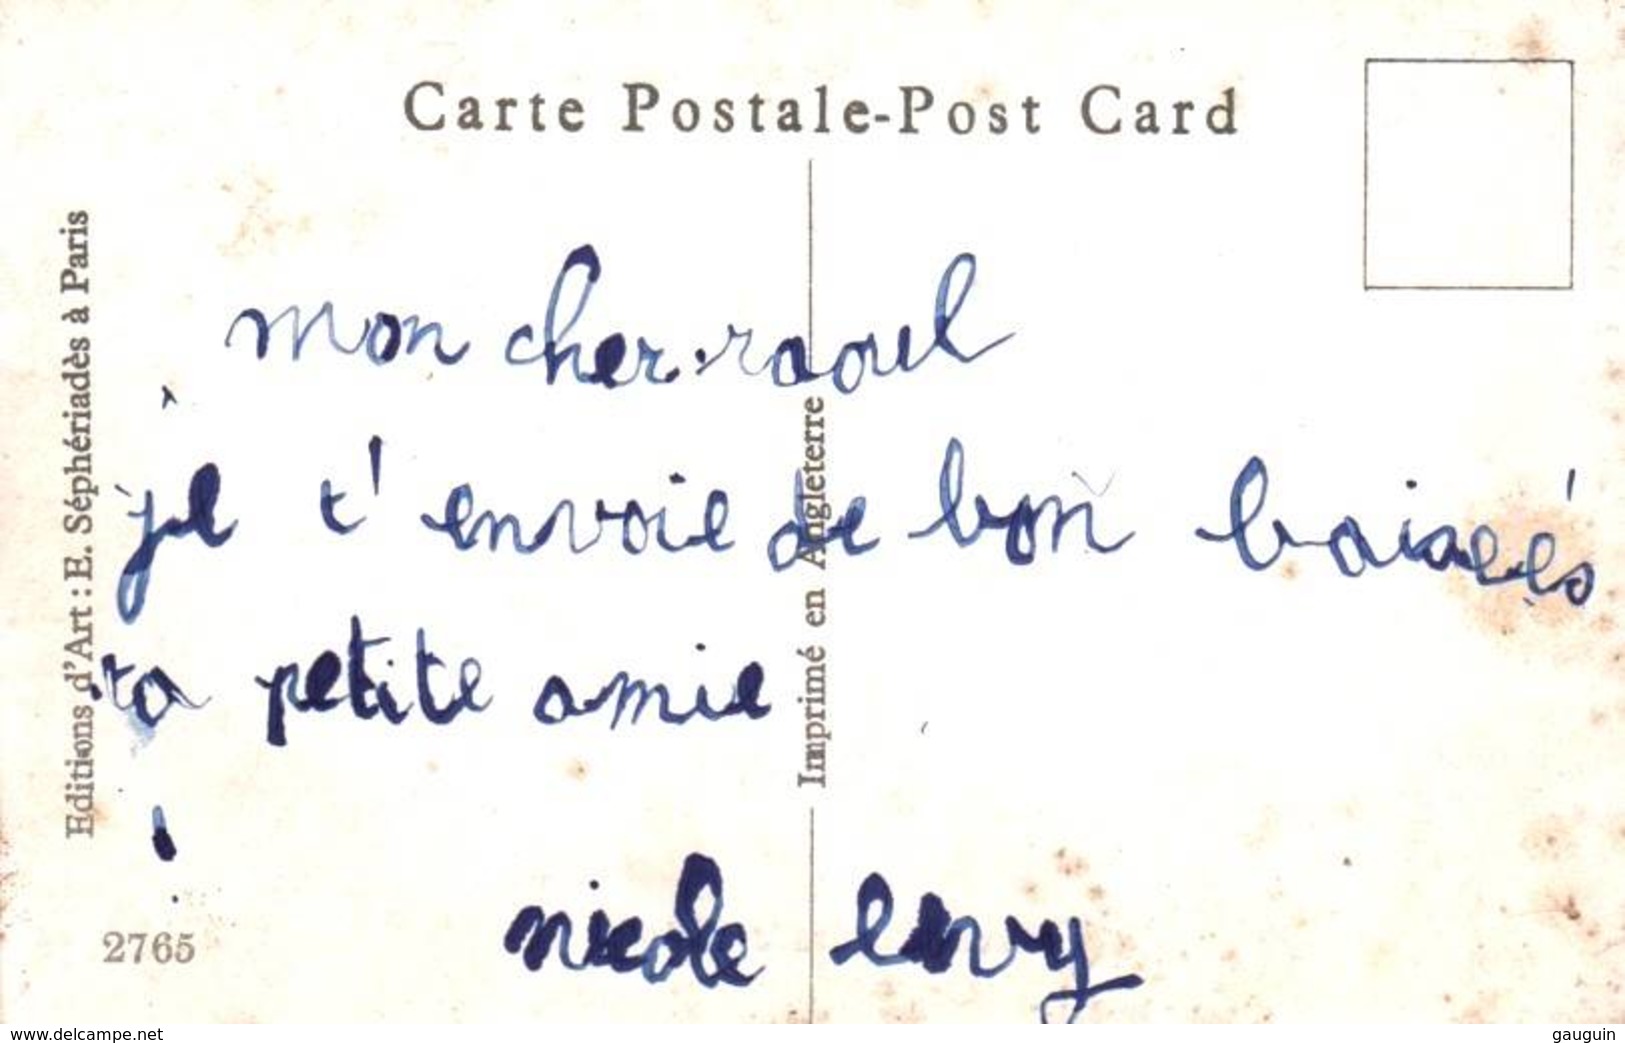 Carte Postale-Post Card
Editions d'Art : E. Séphériadès à Paris
Imprimé en Angleterre
mon cher raoul
je t'envoie de bon baisés
ta petite amie
nicole
2765
www.delcampe.net
gauguin